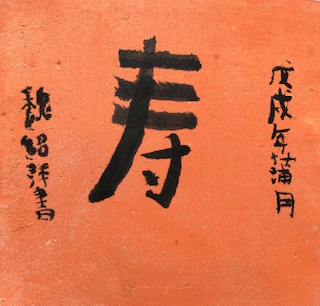 戊戌年蒲月
寿
魏绍祥書